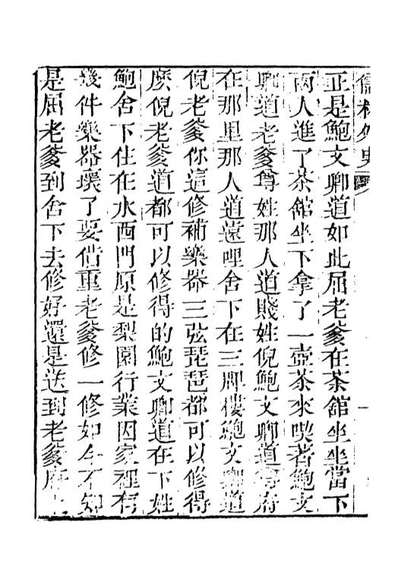 儒林外史
正是鮑文卿道如此屈老爹在茶館坐坐當下
兩人進了茶館坐下拿了一壺茶來喫著鮑文
卿道老爹尊姓那人道賤姓倪鮑文卿道尊府
在那里那人道遠哩舍下在三牌樓鮑文卿道
倪老爹你這修補樂器三弦琵琶都可以修得
麼倪老爹道都可以修得的鮑文卿道在下姓
鮑舍下住在水西門原是梨園行業因家裡有
幾件樂器壞了要借重老爹修一修如今不知
是屈老爹到舍下去修好還是送到老爹府上